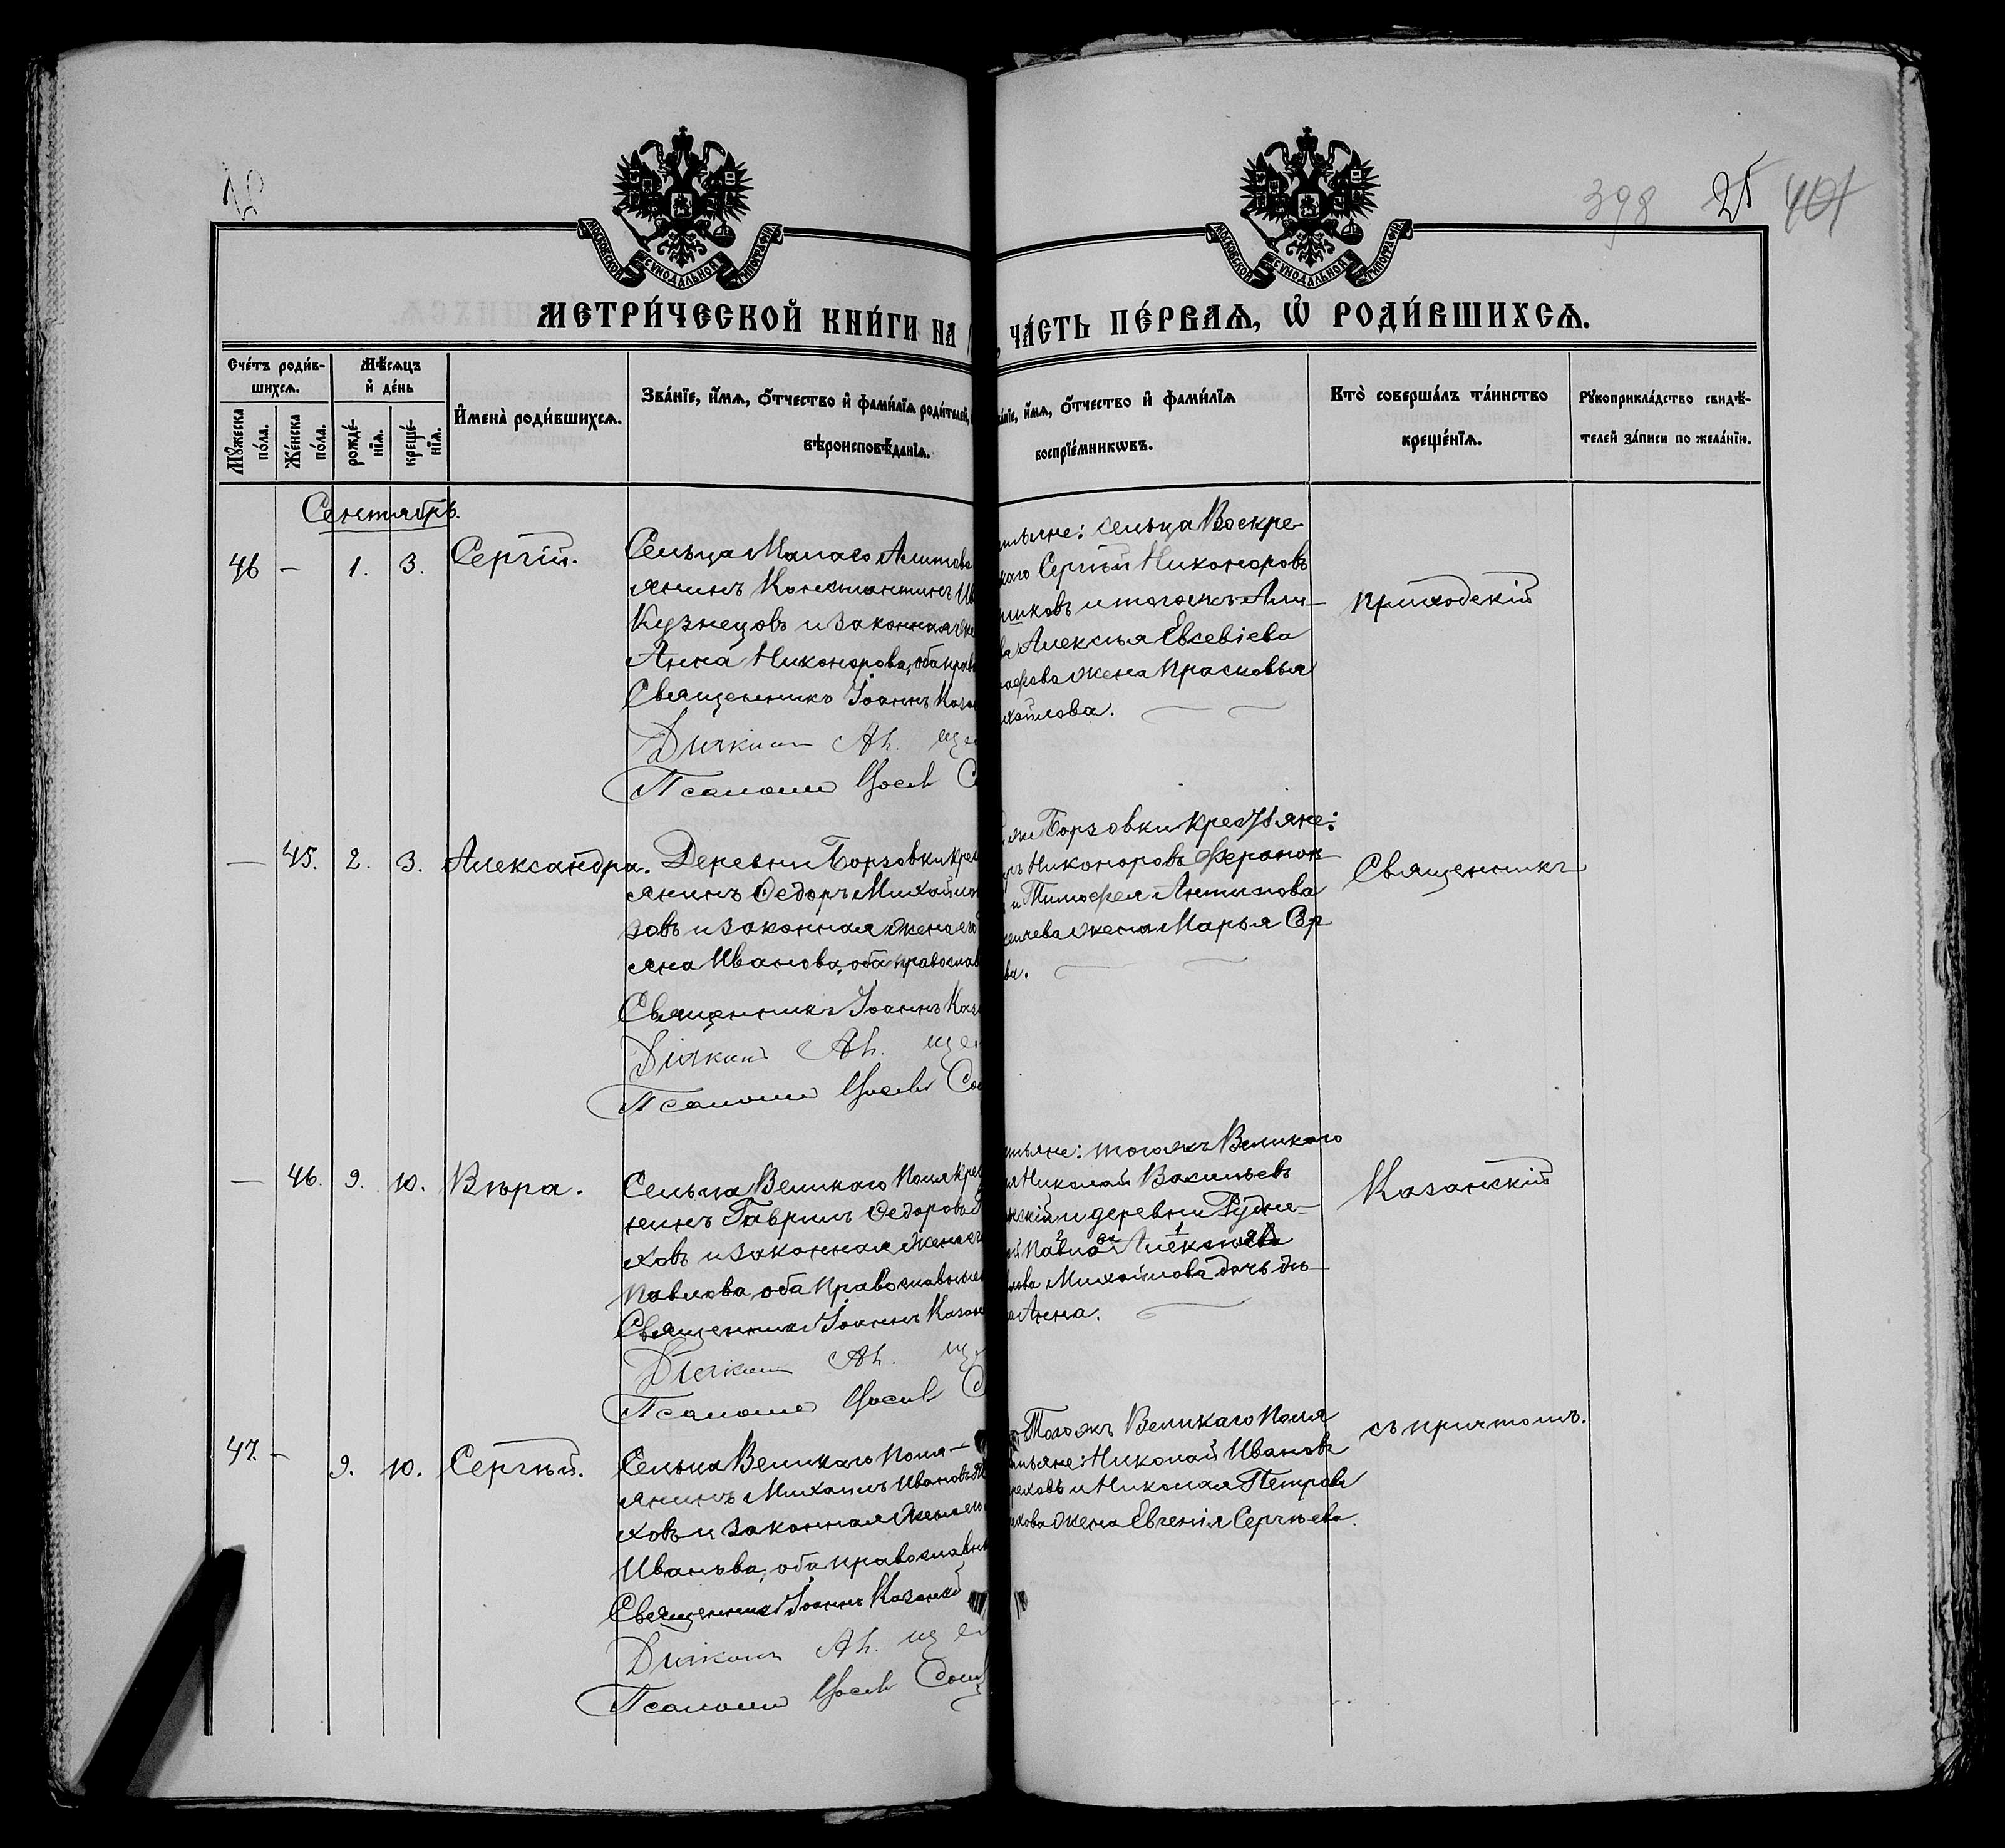 398 25 401
МОСКОВСКОЙ СУНОДАЛЬНОЙ ТИПОГРАФІИ
МОСКОВСКОЙ СУНОДАЛЬНОЙ ТИПОГРАФІИ
МЕТРИ́ЧЕСКОЙ КНИ́ГИ НА
ЧА́СТЬ ПЕ́РВАѦ, Ѽ РОДИ́ВШИХСѦ.
Сче́тъ роди́в-
шихсѧ.
Мꙋ́жеска по́ла.
Же́нска по́ла.
Мѣ́сѧцъ
и҆ де́нь
рожде́-
нїѧ.
креще́-
нїѧ.
И҆мена̀ роди́вшихсѧ.
Зва́нїе, и҆́мѧ, ѻ҆́тчество и҆ фамѝлїѧ роди́телей,
вѣроисповѣ́данїѧ.
и҆́мѧ, ѻ҆́тчество и҆ фами́лїѧ
воспрїе́мникѡвъ.
Кто̀ соверша́лъ та́инство
креще́нїѧ.
Рꙋкоприкла́дство свидѣ́-
телей за́писи по жела́нїю.
Сентябрь.
46 — 1. 3. Сергій.
Сельца Малаго Алитова
янинъ Константинъ Ив
Кузнецовъ и законная же
Анна Никонорова, оба прав
Священникъ Іоаннъ Каза
Діаконъ Ал. Ще
Псаломщ Іосиф С
тьяне: сельца Воскре-
каго Сергѣй Никоноровъ
шиковъ и тогожъ Али-
ва Алексѣя Евсевіева
жена Прасковья
хайлова.
Приходскій
— 45. 2. 3. Александра.
Деревни Борзовки крес
янинъ Ѳедоръ Михайлов
зовъ и законная жена его
яна Иванова, оба православ
Священникъ Іоаннъ Каза
Діаконъ Ал. Ще
Псаломщ Іосиф Сос
Борзовки крестьяне:
Никоноровъ Ферапон
и Тимофея Антипова
жена Марья Сер
ва.
Священникъ
— 46. 9. 10. Вѣра.
Сельца Великаго Поля крес
нинъ Гаврилъ Ѳедоровъ
ховъ и законная жена ег
Павлова, оба православные
Священникъ Іоаннъ Казан
Діаконъ Ал. Ще
Псаломщ Іосиф С
тьяне: тогожъ Великаго
я Николай Васильевъ
скій и деревни Рудне-
Павла Алексѣева
Михайлова дочь дѣ-
Анна.
Казанскій
47. — 9. 10. Сергѣй.
Сельца Великаго Поля —
янинъ Михаилъ Ивановъ
ховъ и законная жена его
Иванова, оба православн
Священникъ Іоаннъ Казанскій
Діаконъ Ал. Ще
Псаломщ Іосиф Сос
Тогожъ Великаго Поля
тьяне: Николай Ивановъ
реховъ и Николая Петрова
хова жена Евгенія Сергѣева.
съ причтомъ.